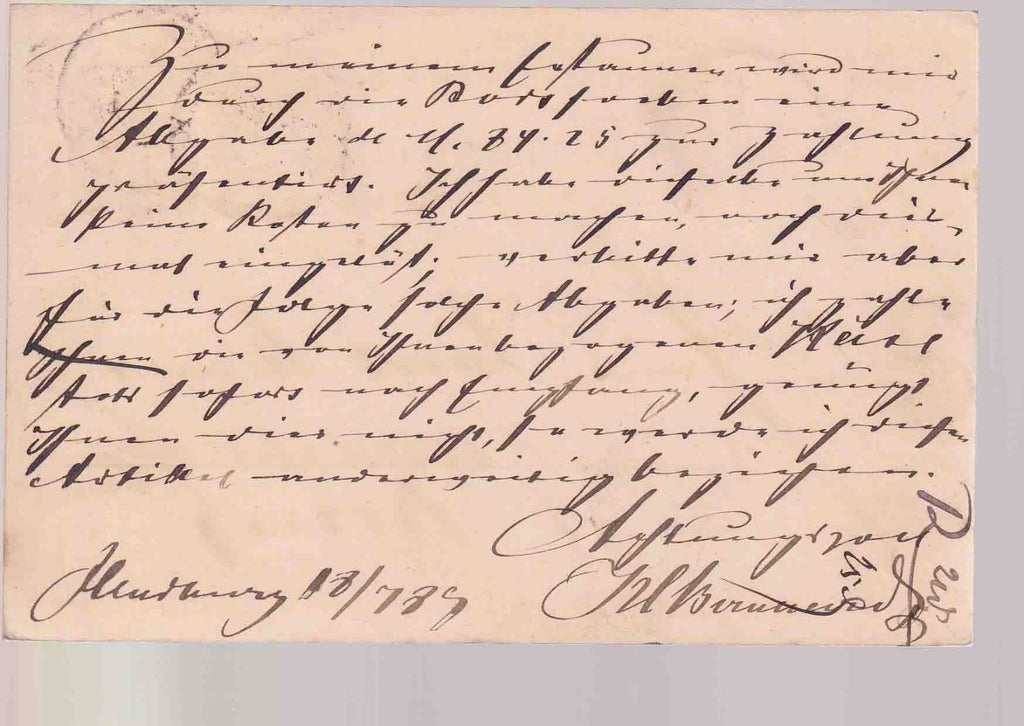 Zu meinem Erstaunen wird mir
durch die Post soeben eine
Abgabe de M. 84.25 zur Zahlung
präsentirt. Ich habe dieselbe um Ihnen
keine Kosten zu machen, noch dies-
mal eingelöst; verbitte mir aber
für die Folge solche Abgaben; ich zahle
Ihnen die von Ihnen bezogenen Käse
stets sofort nach Empfang, genügt
Ihnen dies nicht, so werde ich diesen
Artikel anderweitig beziehen.
Achtungsvoll
18/7 89